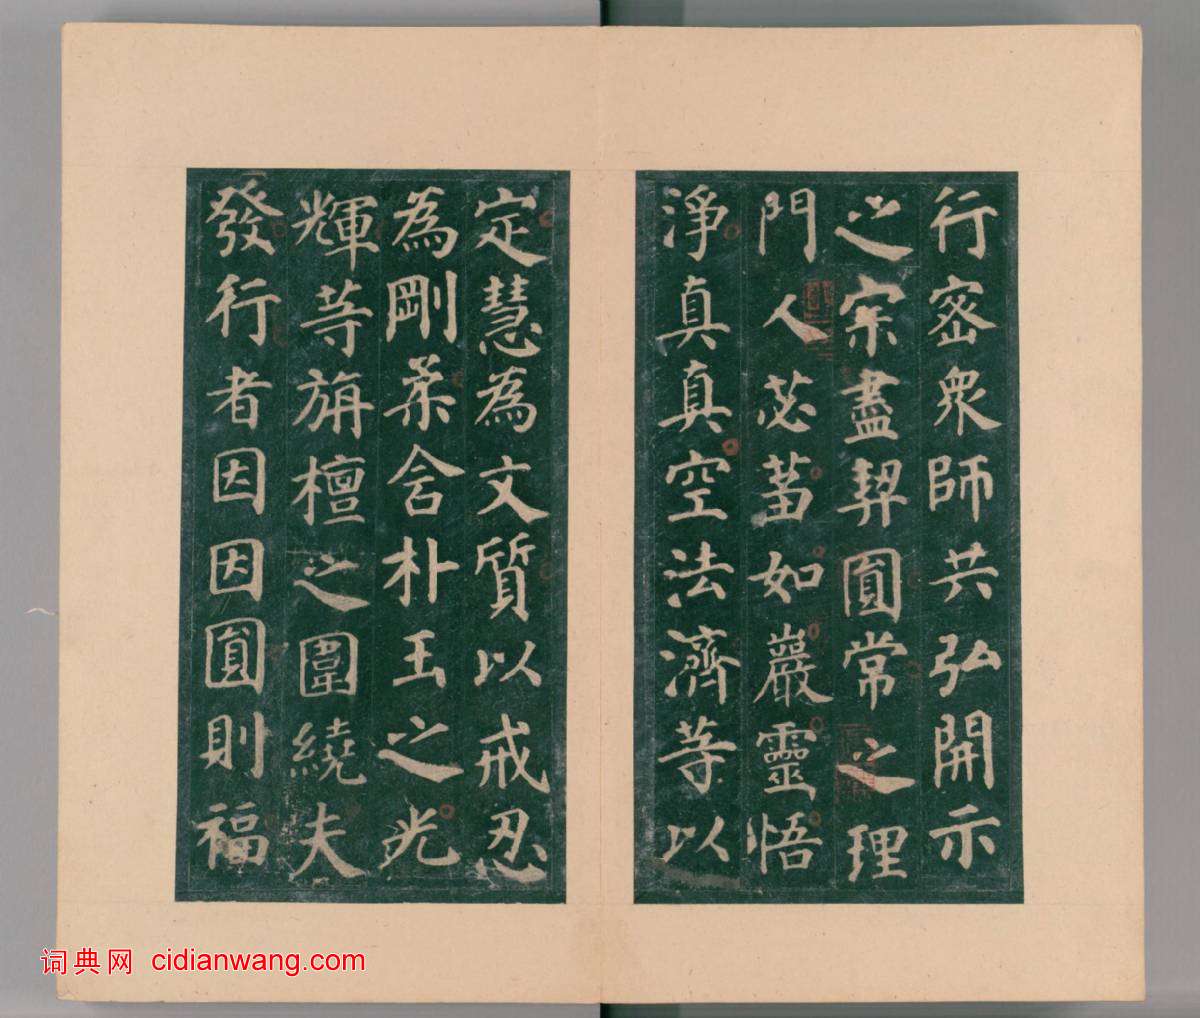 行密衆師共弘開示
之宗盡契圓常之理
門人苾蒭如巖靈悟
淨真真空法濟等以
定慧為文質以戒忍
為剛柔含朴玉之光
輝等旃檀之圍繞夫
發行者因因圓則福
词典网 cidianwang.com